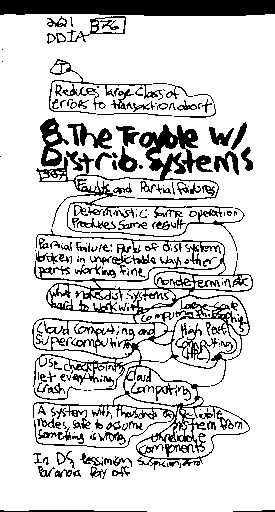 DDIA
Reduces large class of
errors to transaction abort
8. The Trouble w/
Distrib. Systems
Faults and Partial failures
Deterministic: same operation
Produces same result
Partial failure: parts of dist system
broken in unpredictable way, other
parts working fine
nondeterministic
what makes dist systems
hard to work with
Large-scale
computing philosophies
Cloud Computing and
Supercomputing
High Perf
Computing
Use checkpoints,
let everything
crash
Cloud
Computing
A system with thousands of
nodes, safe to assume
something is wrong
reliable
system from
unreliable
components
In DS, pessimism
suspicion, and
Paranoia pay off